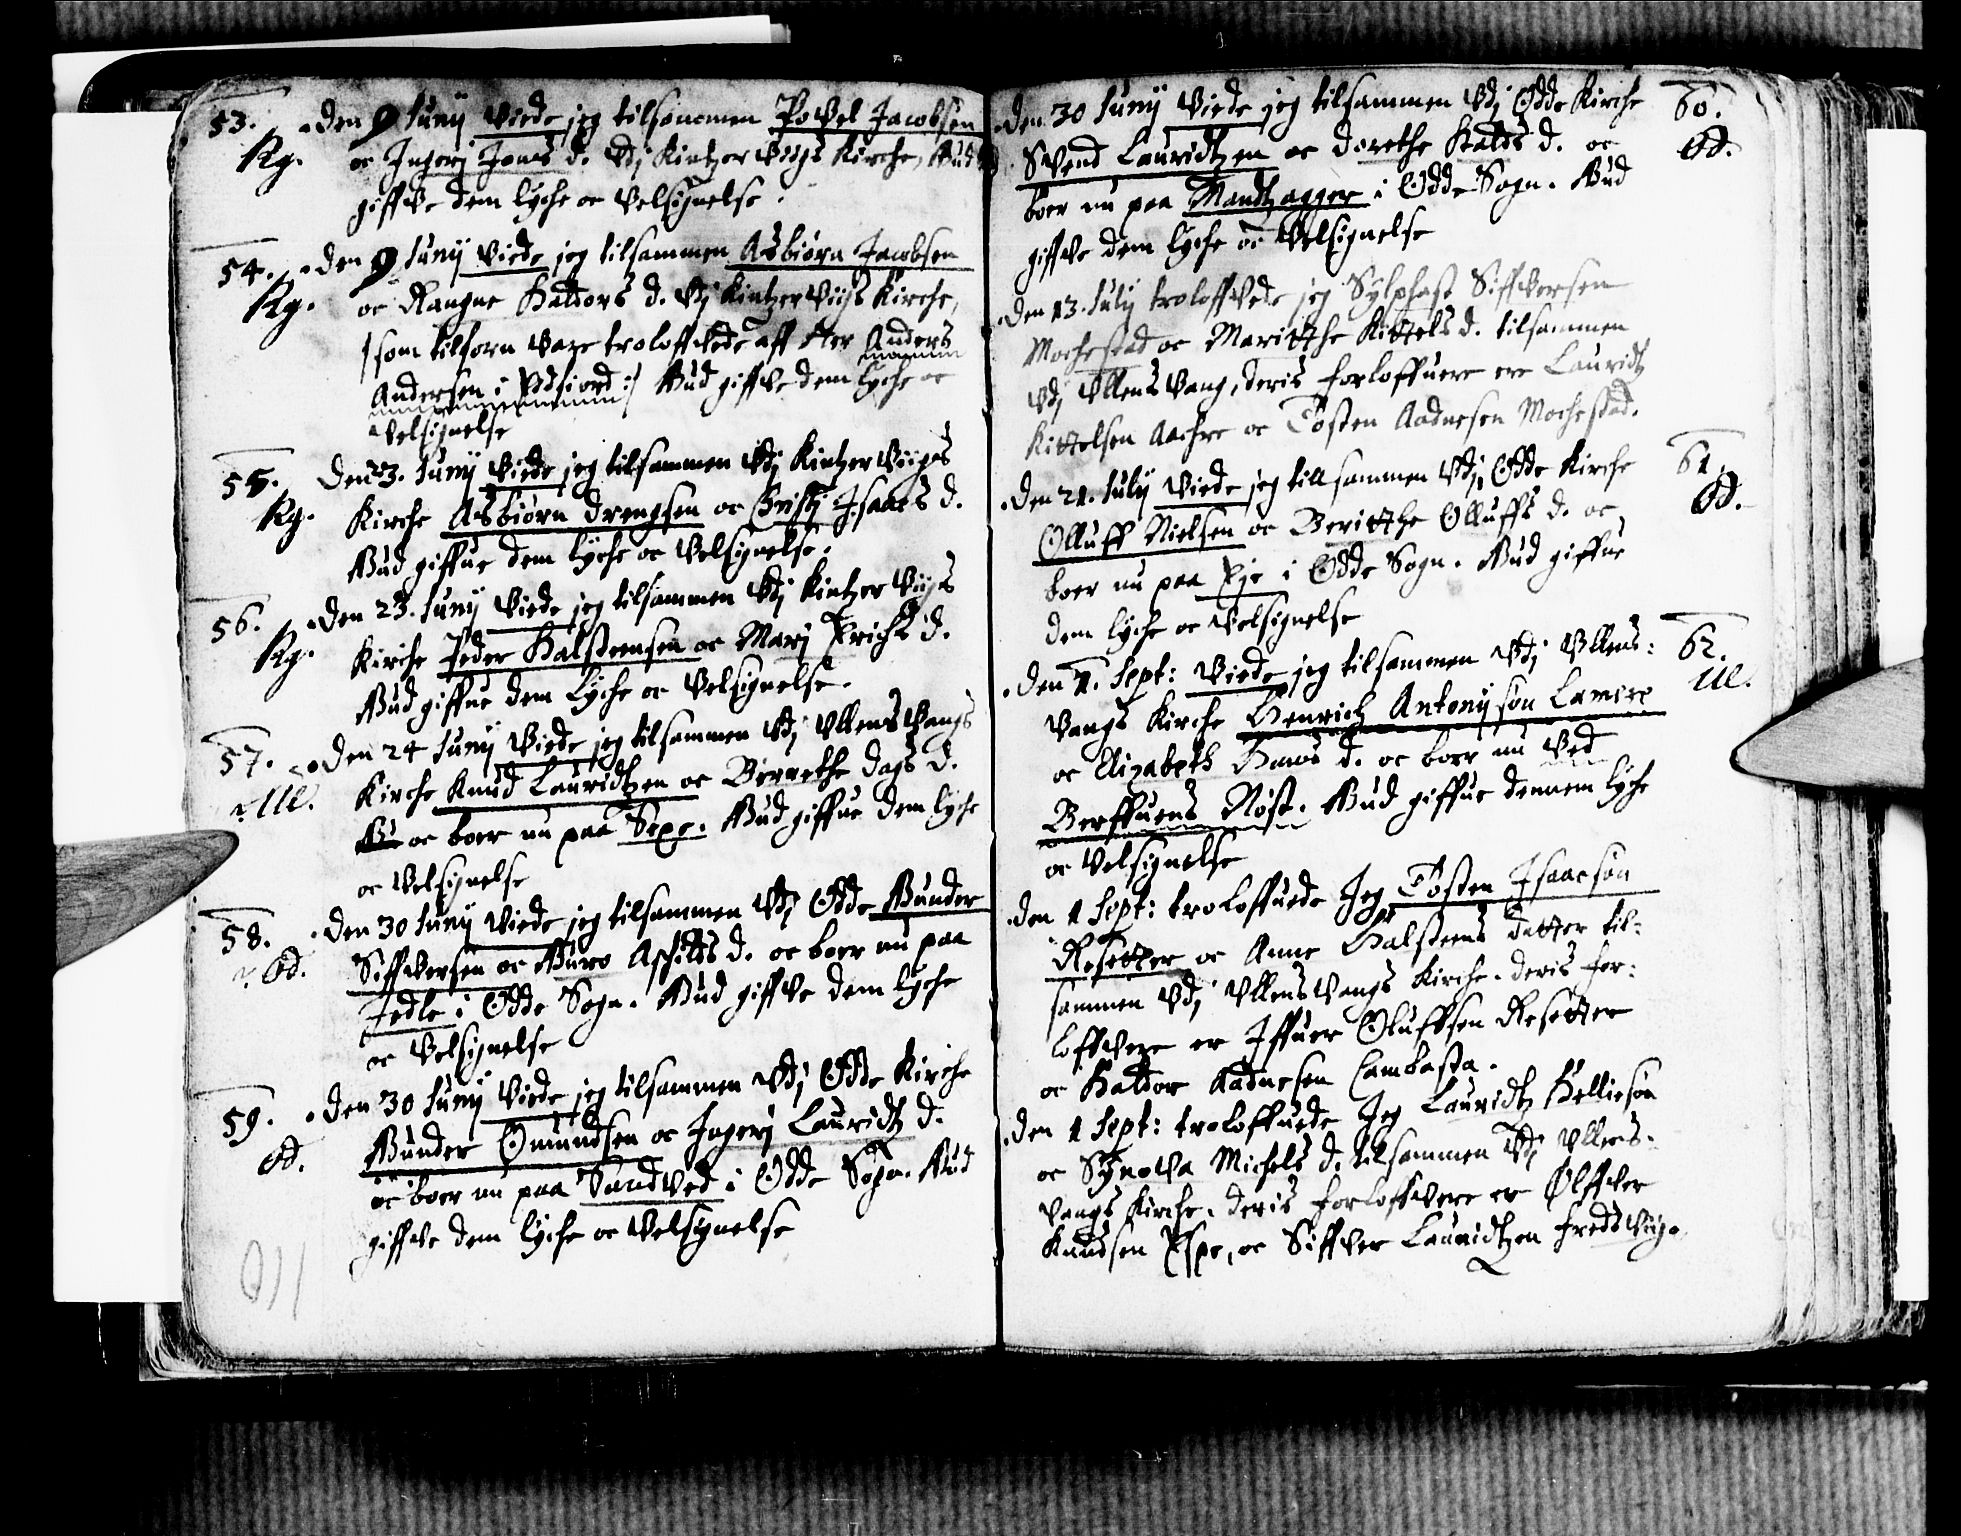 53. Den 9 Junij Viede jeg tilsammen Povel Jacobsen
Kg. oc Ingerj Jons d. Vdj Kintzerviigs Kirche, Gud
giffve dem lyche oc Velsignelse.
54. Den 9 Junij Viede jeg tilsammen Asbiørn Jacobsen
Kg. oc Rangne Haldors d. Vdj Kintzerviigs Kirche,
/som tilforn vare troloffvede aff Her Anders
Andersen i Eidfiord:/ Gud giffve dem lyche oc
Velsignelse
55. Den 23. Junij Viede jeg tilsammen Vdj Kintzerviigs
Kg. Kirche Asbiørn Drengsen oc Christj Isaacs d.
Gud giffue dem lyche oc Velsignelse.
56. Den 23. Junij Viede jeg tilsammen Vdj Kintzerviigs
Kg. Kirche Peder Halsteensen oc Marj Erichs d.
Gud giffue dem Lyche oc Velsignelse.
57. Den 24 Junij Viede jeg tilsammen Vdj Vllensvangs
Ull. Kirche Knud Lauridtzen oc Birrethe Dags d.
oc boer nu paa Sexe. Gud giffue dem lyche
oc Velsignelse
58. Den 30 Junij Viede jeg tilsammen Vdj Odde Gunder
Od. Siffversen oc Guro Aschilds d. oc boer nu paa
Jedle i Odde Sogn. Gud giffve dem lyche
oc Velsignelse
59. Den 30 Junij Viede jeg tilsammen Vdj Odde Kirche
Od. Gunder Omundsen oc Ingerj Lauridtz d.
oc boer nu paa Sandved i Odde Sogn. Gud
giffve dem lyche oc Velsignelse
Den 30 Junij Viede jeg tilsammen Vdj Odde Kirche 60.
Svend Lauridtzen oc Dorethe Halds d. oc Od.
boer nu paa Mandtzagger i Odde Sogn. Gud
giffve dem lyche oc Velsignelse
Den 13. Julij troloffvede jeg Sylphast Siffversen
Mochestad oc Maritthe Kittels d. tilsammen
vdj Vllensvang, deris forloffuere ere Lauridtz
Kittelsen Aachre oc Tosten Aadnesen Mochestad.
Den 21. Julij Viede jeg tillsammen Vdj Odde Kirche 61.
Olluff Nielsen oc Beritthe Olluffs d. oc Od.
boer nu paa Eje i Odde Sogn. Gud giffue
dem lyche oc Velsignelse
Den 1. Sept: Viede jeg tilsammen Vdj Vllens: 62.
vangs Kirche Henrich Antonijsøn Lamere Ull.
oc Elizabeth Hans d. oc boer nu Ved
Berffuens Nøst. Gud giffue dennem lyche
oc Velsignelse
Den 1 Sept: troloffuede Jeg Tosten Isaacsøn
Resetter oc Anne Halsteens datter til:
sammen Vdj Vllensvangs Kirche. deris for:
loffvere er Iffuer Oluffsen Resetter
oc Haldor Aadnesen Lambasta.
Den 1 Sept: troloffuede Jeg Lauridtz Helliesøn
oc Synnova Michels d. tilsammen Vdj Vllens:
vangs Kirche. deris forloffvere er Ølffver
Knudsen Espe, oc Siffver Lauridtzen Fredsviig.